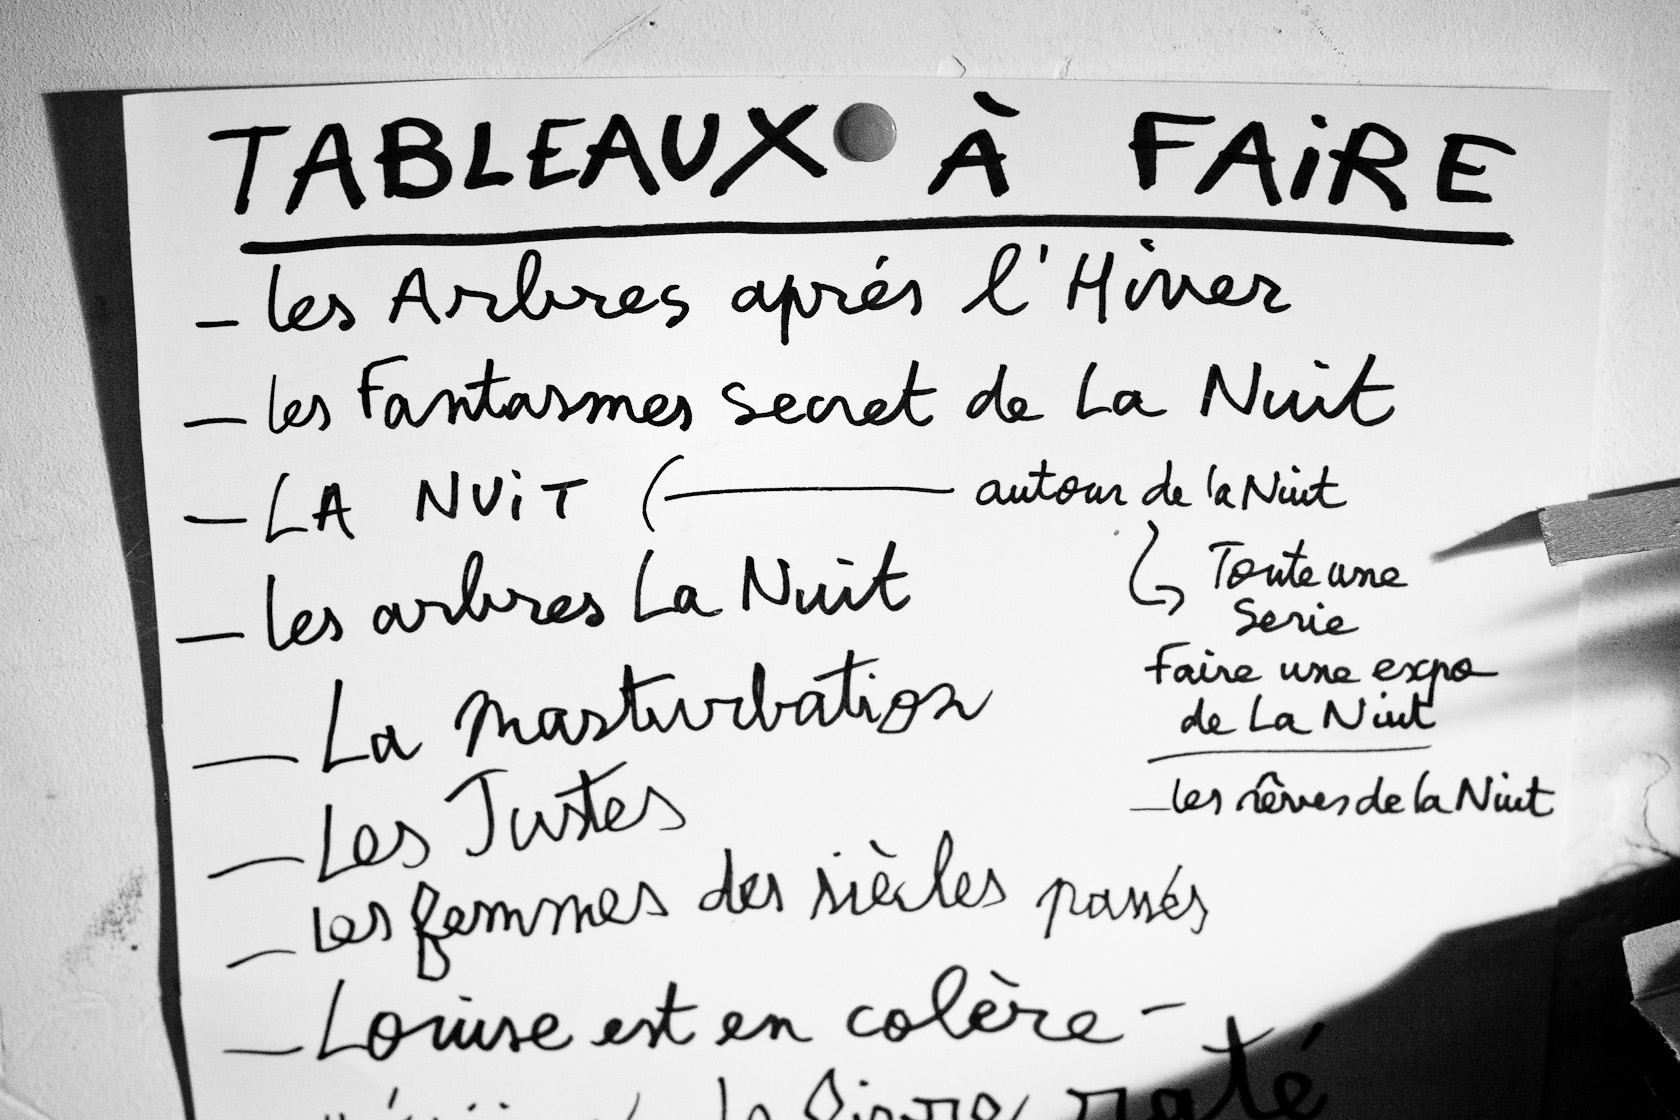 TABLEAUX À FAIRE
_ les Arbres après l'Hiver
_ les Fantasmes secret de La Nuit
_ LA NUiT ( autour de la Nuit
Toute une
Serie
_ les arbres La Nuit
Faire une expo
de La Nuit
_ La masturbation
_ les rêves de la Nuit
_ Les Justes
_ Les femmes des siècles passés
_ Louise est en colère -
raté